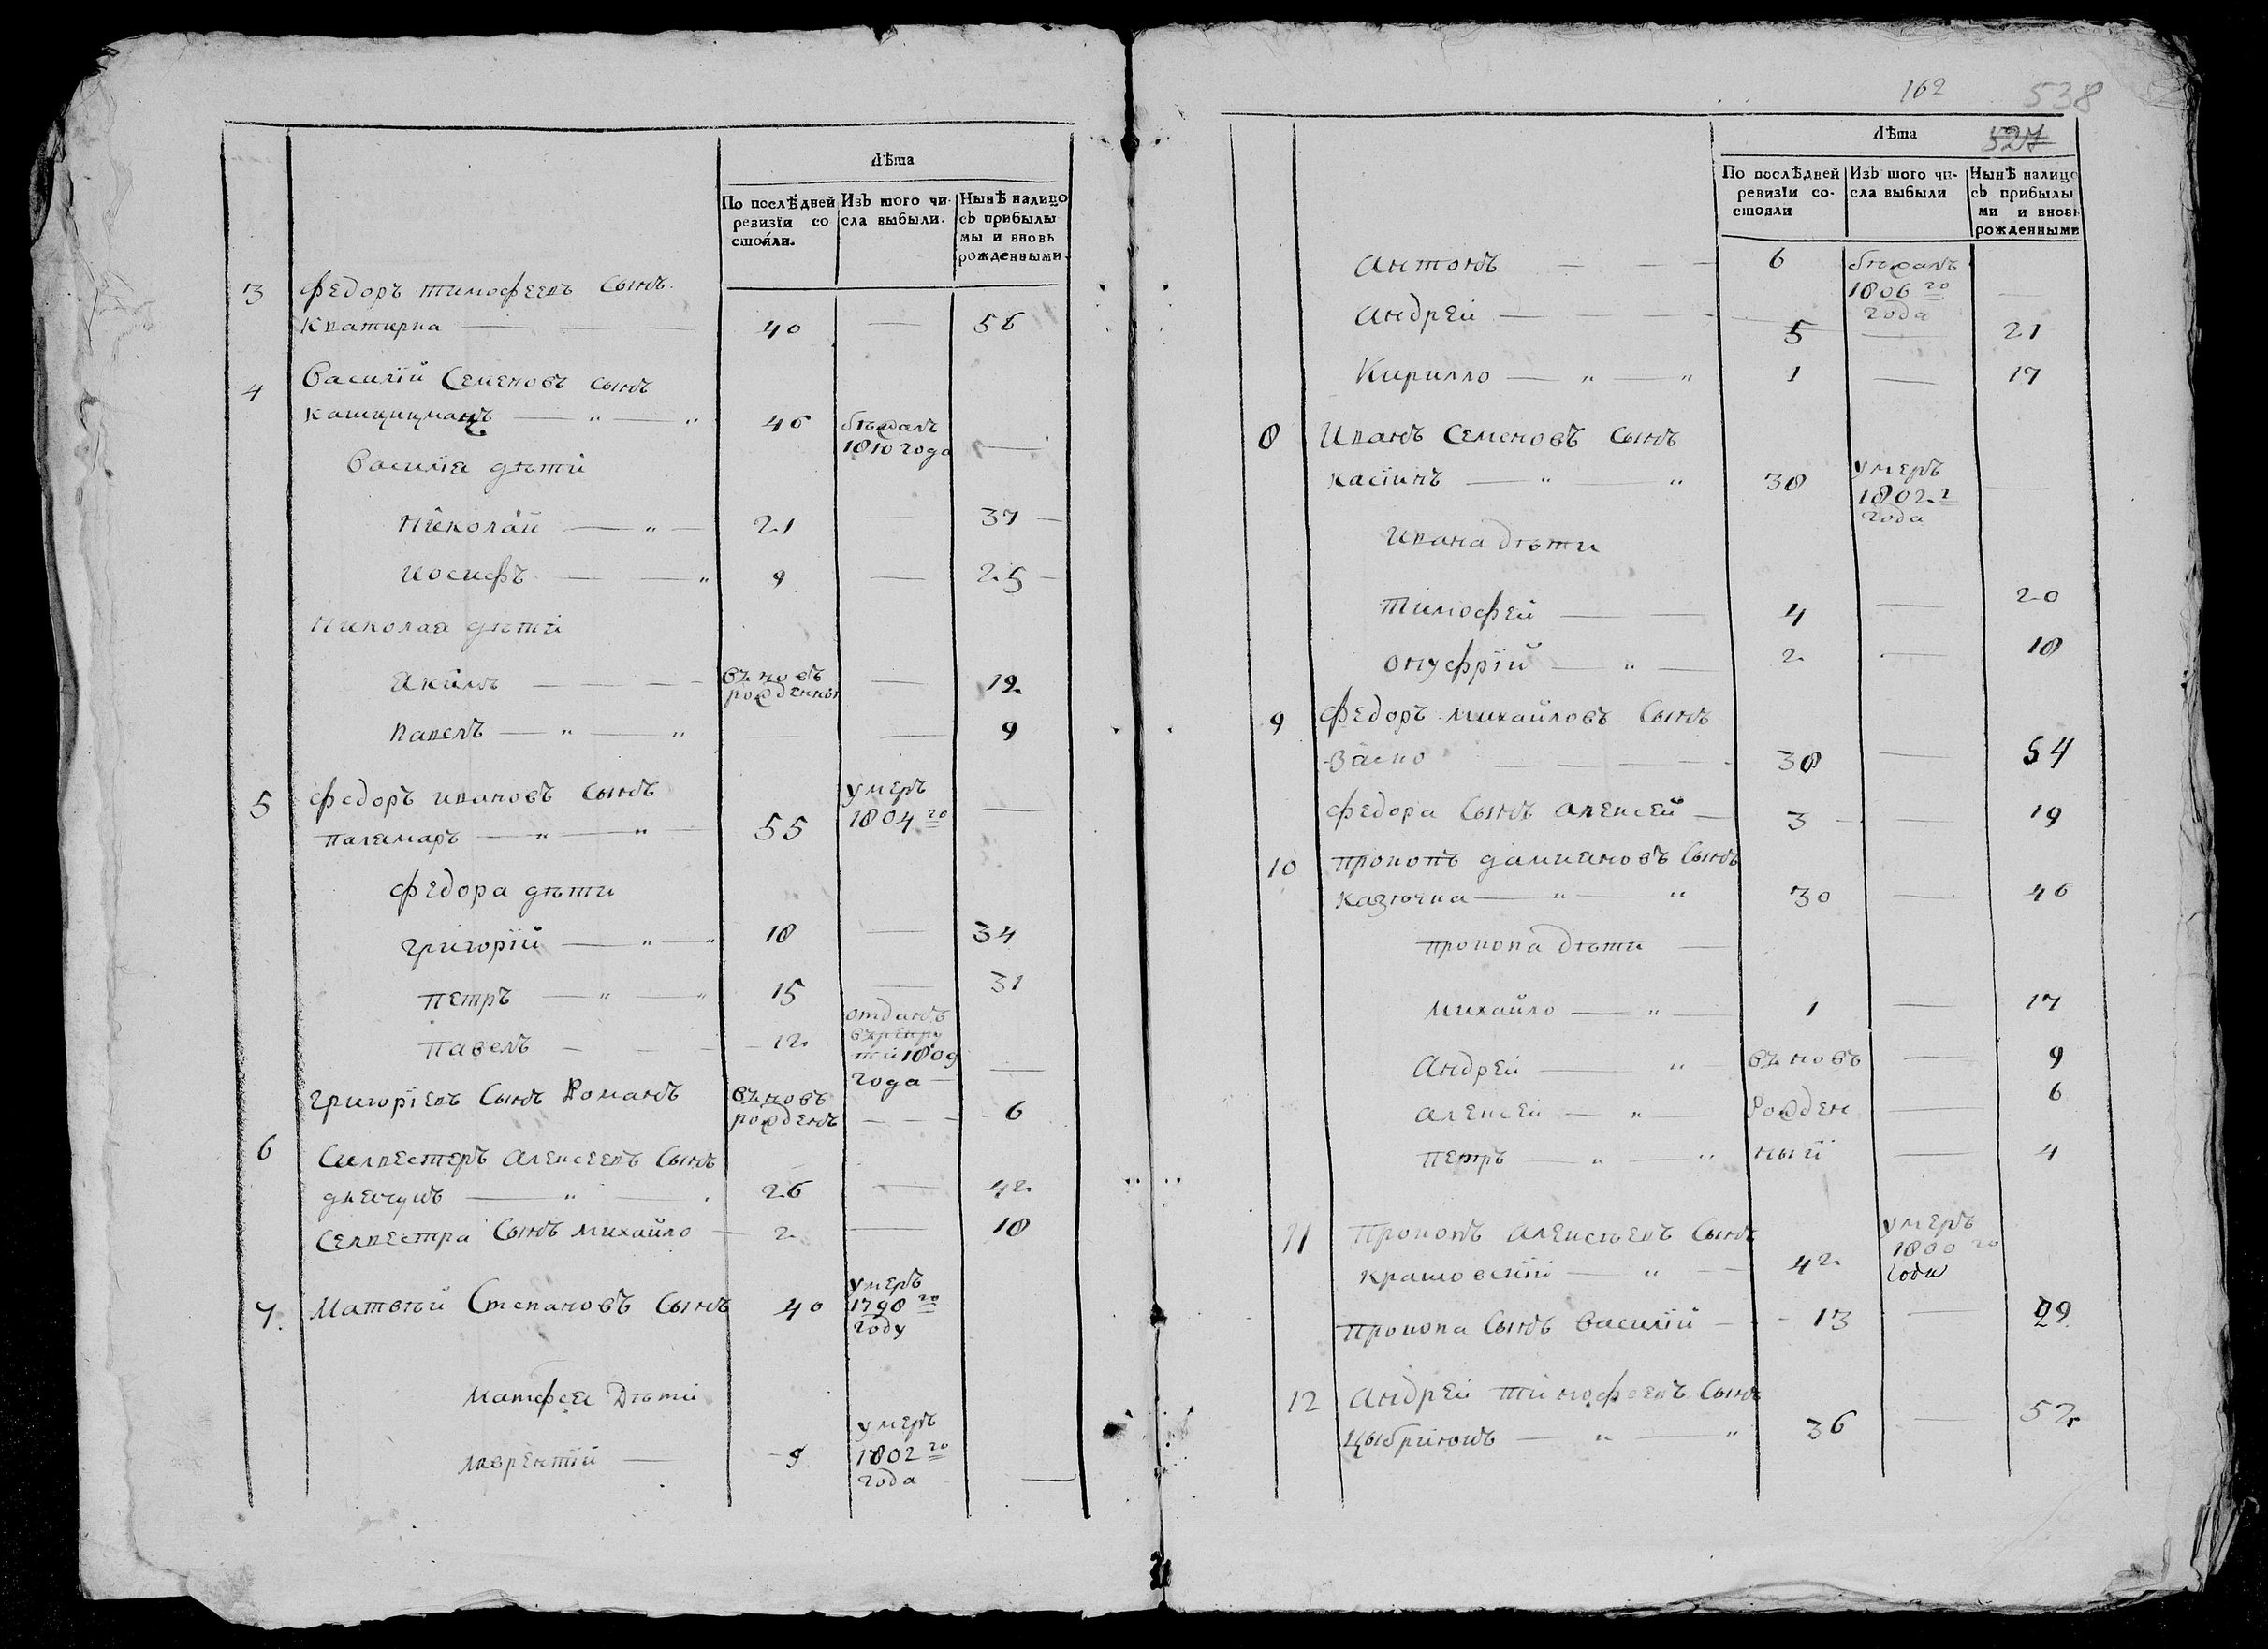 Лѣта
По послѣдней ревизїи со стояли.
Изъ того чи-сла выбыли.
Нынѣ налицо съ прибылы мы и вновь рожденными.
3 Федоръ тимофеевъ сынъ
40 — 56
4 Василїй Семеновъ сынъ
46 бѣжалъ 1810 года —
Василїя дѣти
Николай — 21 — 37
иосифъ — 9 — 25
Николая дѣти
Якимъ — въновъ рожденны — 19
Павелъ — — — 9
5 Федоръ ивановъ сынъ
паламаръ — 55 умеръ 1804го —
Федора дѣти
григорїй — 18 — 34
петръ — 15 — 31
павелъ — 12 отданъ в рекру ты 1809 года —
григорїевъ сынъ Романъ въновъ рожденъ — 6
6 Силвестеръ алексеевъ сынъ
26 — 42
Селвестра сынъ михайло — 2 — 18
7. Матвѣй Степановъ сынъ 40 умеръ 1798го году
Матфея Дѣти
лаврентїй — 9 умеръ 1802го года —
162
538
527
Лѣта
По послѣдней ревизїи со-стояли
Изъ того чи-сла выбыли
Нынѣ налицо съ прибылы ми и вновь рожденными
антонъ — 6 бѣжалъ 1806го года —
андрей — 5 — 21
Кирилло — 1 — 17
8 Иванъ Семеновъ сынъ
касїинъ — 38 умеръ 1802г года —
ивана дѣти
тимофей — 4 — 20
онуфрїй — 2 — 18
9 Федоръ михайловъ сынъ
38 — 54
Федора сынъ алексей — 3 — 19
10 прокопъ дамияновъ сынъ
казючка — 30 — 46
прокопа дѣти —
михайло — 1 — 17
андрей — въновъ — 9
алексей — рожден — 6
петръ — ный — 4
11 прокопъ алексѣевъ сынъ
42 умеръ 1800го года
прокопа сынъ василїй — 13 — 29
12 андрей тимофеевъ сынъ
36 — 52